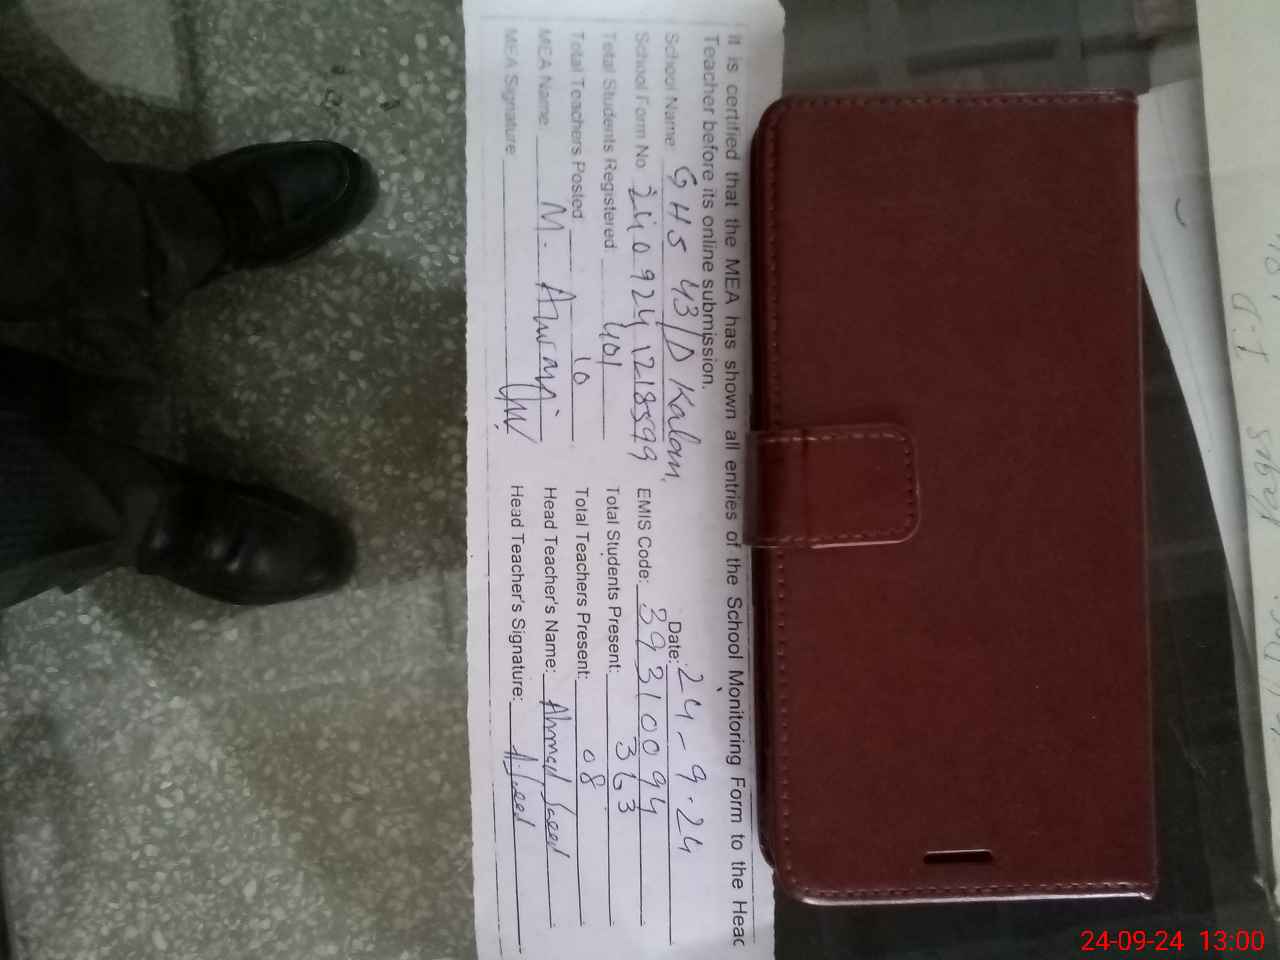 It is certified that the MEA has shown all entries of the School Monitoring Form to the Head
Teacher before its online submission.
School Name GHS 43/D Kalan. Date: 24-9-24
School Form No. 2409241218599 EMIS Code: 39310094
Total Students Registered 401 Total Students Present: 363
Total Teachers Posted 10 Total Teachers Present: 08
MEA Name: M. Head Teacher's Name: Ahmed Saeed
MEA Signature: Head Teacher's Signature: A. Saeed
24-09-24 13:00